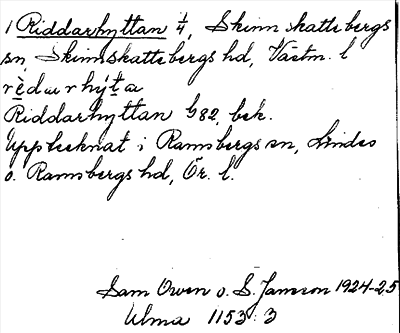 1 Riddarhyttan 1/4, Skinnskattebergs
sn, Skinnskattebergs hd, Västm. l
Riddarhyttan G82, bek.
Upptecknat i Ramsbergs sn, Lindes
o. Ramsbergs hd, Ör. l.
Sam Owen o. S. Jansson 1924-25
Ulma 1153:3